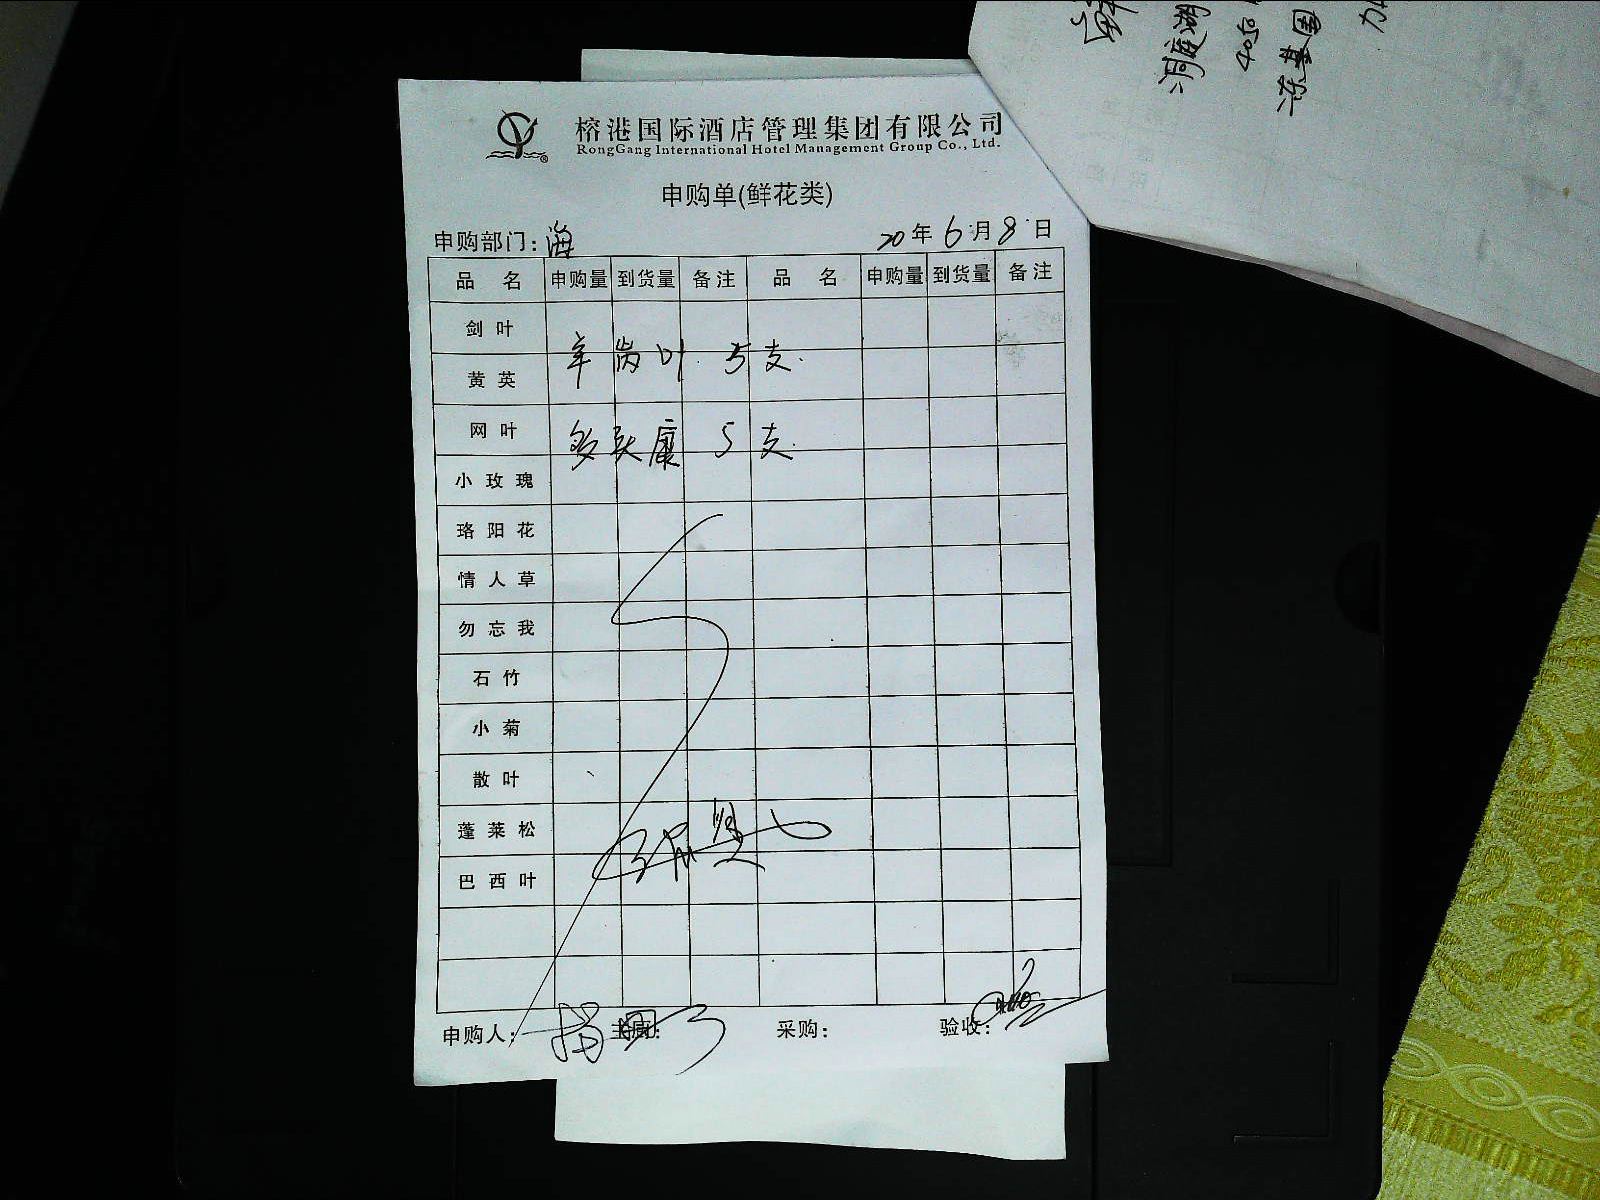 榕港国际酒店管理集团有限公司
RongGang International Hotel Management Group Co., Ltd.
申购单(鲜花类)
申购部门：海 20年6月8日
品名 申购量 到货量 备注 品名 申购量 到货量 备注
剑叶
辛岗叶 5支.
黄英
网叶
多头康 5支.
小玫瑰
珞阳花
情人草
勿忘我
石竹
小菊
散叶
蓬莱松
巴西叶
申购人： 主厨： 采购： 验收：
洞庭湖
4050
冻基围